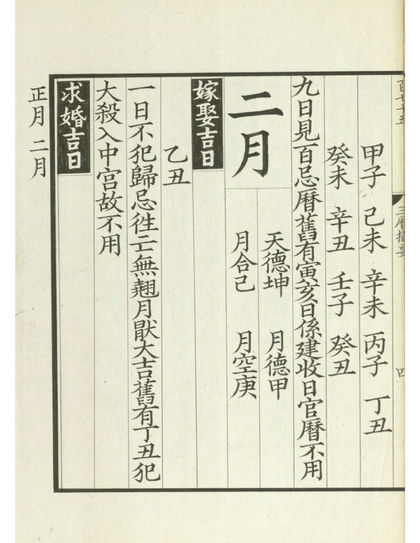 三曆撮要 四
甲子 己未 辛未 丙子 丁丑
癸未 辛丑 壬子 癸丑
九日見百忌曆舊有寅亥日係建收日官曆不用
二月
天德坤 月德甲
月合己 月空庚
嫁娶吉日
乙丑
一日不犯歸忌徃亡無翹月厭大吉舊有丁丑犯
大殺入中宮故不用
求婚吉日
正月 二月